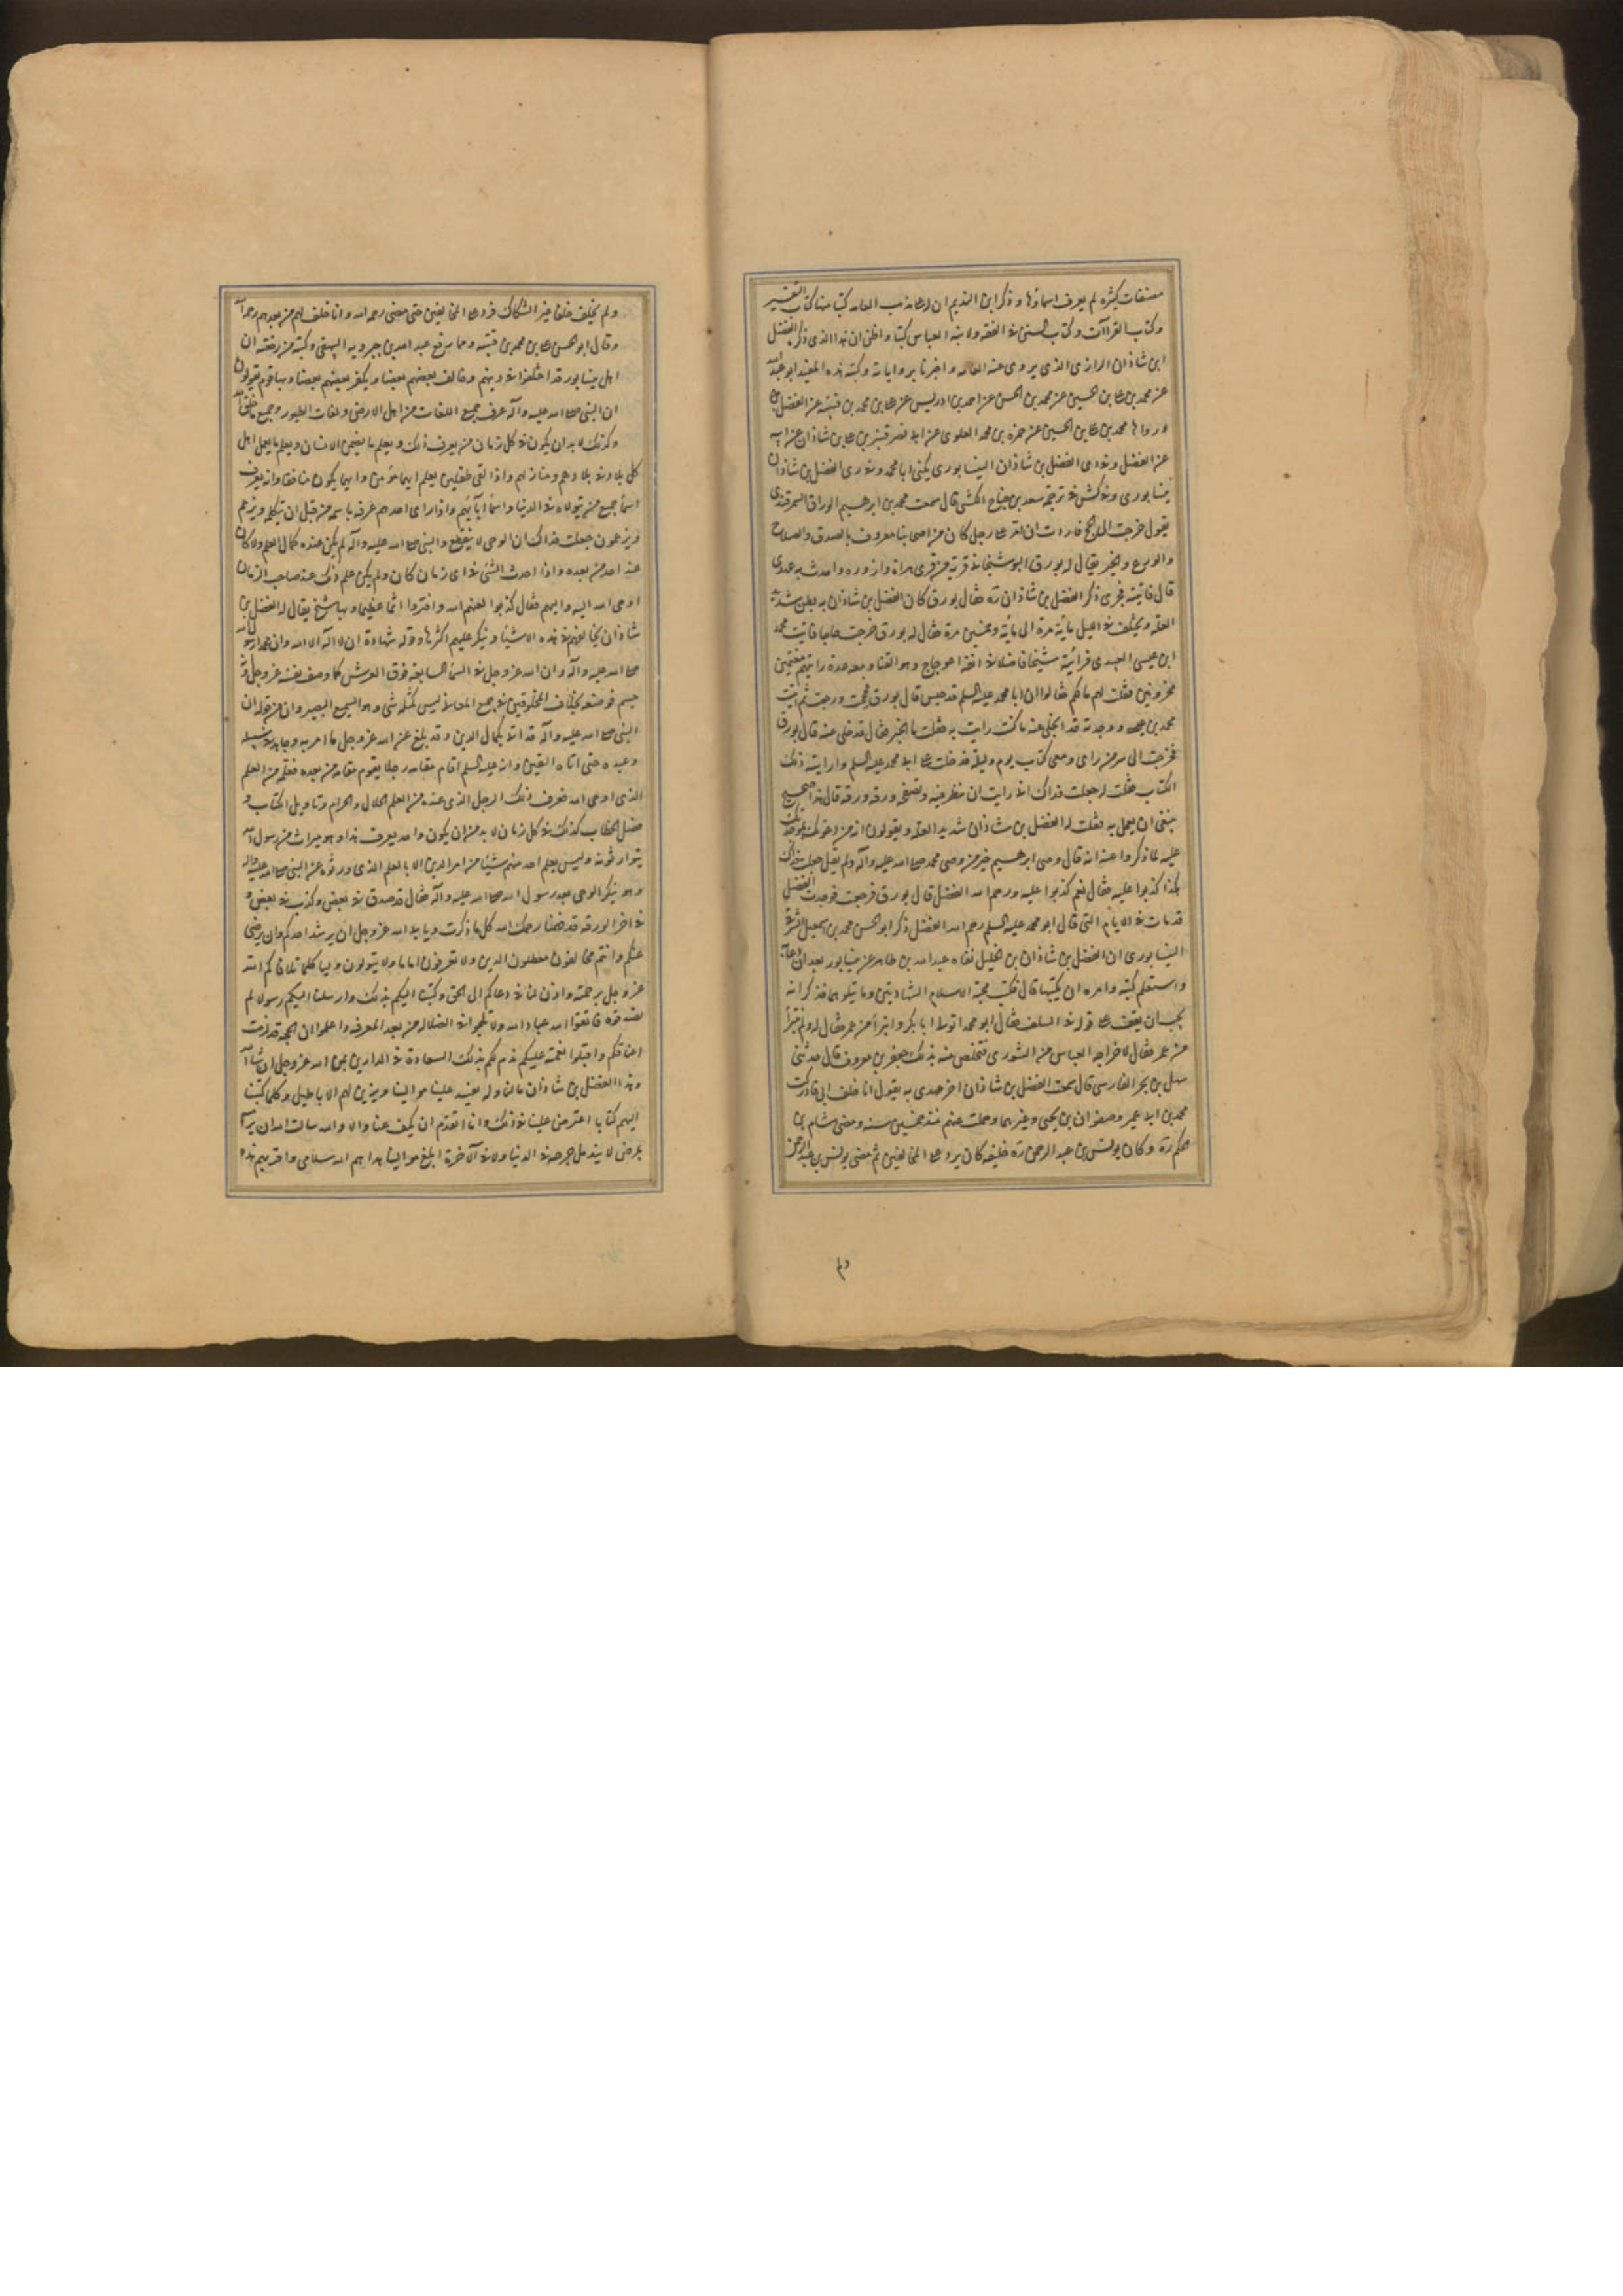 مصنفات كثيرة لم يعرف اسماؤها و ذكر ابن النديم ان له على مذهب العامه كتبا منها كتاب التفسير
و كتاب القراآت و كتاب السنن فى الفقه ولابنه العباس كتبا و اظن ان هذا الذى ذكره الفضل
ابن شاذان الرازى الذى يروى عنه العامه و اخبرنا برواياته و كتبه هذه المفيد ابو عبد الله
عن محمد بن على بن الحسين عن محمد بن الحسن عن احمد بن ادريس عن على بن محمد بن قتيبه عن الفضل بن
و رواها محمد بن على بن الحسين عن حمزه بن محمد العلوى عن ابى نصر قنبر بن على بن شاذان عن ابيه
عن الفضل و فى دى الفضل بن شاذان النيسابورى يكنى ابا محمد و فى رى الفضل بن شاذان
نيسابورى و فى كش فى ترجمة سعد بن جناح الكشى قال سمعت محمد بن ابرهيم الوراق السمرقندى
يقول خرجت الى الحج فاردت ان امر على رجل كان من اصحابنا معروف بالصدق والصلاح
والورع والخير يقال له بورق البوسنجانى قرية من قرى هراة وازوره واحدث به عهدى
قال فاتيته فجرى ذكر الفضل بن شاذان ره فقال بورق كان الفضل بن شاذان به بطن شديد
العله و يختلف فى الليل مائة مرة الى مائة و خمسين مرة فقال له بورق خرجت حاجا فاتيت محمد
ابن عيسى العبيدى فرأيته شيخا فاضلا فى انفه اعوجاج وهو القنا و معه عدة رايتهم مغتمين
محزونين فقلت لهم ما لكم فقالوا ان ابا محمد عليه السلم قد حبس قال بورق فحججت و رجعت ثم اتيت
محمد بن عيسى و وجدته قد انجلى عنه ما كنت رايت به فقلت ما الخبر فقال قد خلى عنه قال بورق
فخرجت الى سر من راى و معى كتاب يوم و ليله فدخلت على ابى محمد عليه السلم و اريته ذلك
الكتاب فقلت له جعلت فداك انى رايت ان تنظر فيه و تصفحه ورقه ورقه قال هذا صحيح
ينبغى ان يعمل به فقلت له الفضل بن شاذان شديد العله و يقولون انه من دعوتك بموجدتك
عليه لما ذكروا عنه انه قال وصى ابرهيم خير من وصى محمد صلى الله عليه وآله ولم يقل جعلت فداك
هكذا كذبوا عليه فقال نعم كذبوا عليه و رحم الله الفضل قال بورق فرجعت فوجدت الفضل
قد مات فى الايام التى قال ابو محمد عليه السلم رحم الله الفضل ذكر ابو الحسن محمد بن اسمعيل البندقى
النيسابورى ان الفضل بن شاذان بن الخليل نفاه عبد الله بن طاهر عن نيسابور بعد ان دعا به
واستعلم كتبه و امره ان يكتبها قال فكتب تحته الاسلام الشهادتين و ما يتلوهما فذكر انه
يحب ان يقف على قوله فى السلف فقال ابو محمد اتولى ابا بكر و اتبرأ من عمر فقال له و لم تتبرأ
من عمر فقال لاخراجه العباس من الشورى فتخلص منه بذلك جعفر بن معروف قال حدثنى
سهل بن بحر الفارسى قال سمعت الفضل بن شاذان اخر عهدى به يقول انا خلف لمن مضى ادركت
محمد بن ابى عمير و صفوان بن يحيى و غيرهما و حملت عنهم منذ خمسين سنه و مضى هشام بن
الحكم ره و كان يونس بن عبد الرحمن ره خليفه كان يرد على المخالفين ثم مضى يونس بن عبد الرحمن
ولم يخلف خلفا غير السكاك فرد على المخالفين حتى مضى رحمه الله و انا خلف لهم من بعدهم رحمهم الله
و قال ابو الحسن على بن محمد بن قتيبه و مما وقع عبد الله بن حمدويه البيهقى و كتبته من رقعته ان
اهل نيسابور قد اختلفوا فى دينهم و خالف بعضهم بعضا و يكفر بعضهم بعضا و بها قوم يقولون
ان النبى صلى الله عليه وآله عرف جميع اللغات من اهل الارض و لغات الطيور و جميع ما خلق الله
و كذلك لا بد ان يكون فى كل زمان من يعرف ذلك و يعلم ما يضمر الانسان و يعلم ما يعمل اهل
كل بلاد فى بلادهم و منازلهم و اذا لقى طفلين يعلم ايهما مؤمن و ايهما يكون منافقا و انه يعرف
اسماء جميع من يتولاه فى الدنيا و اسماء آبائهم و اذا رأى احدهم عرفه باسمه من قبل ان يكلمه و يزعم
ويزعمون جعلت فداك ان الوحى لا ينقطع والنبى صلى الله عليه وآله لم يكن عنده كمال العلم ولا كان
عند احد من بعده و اذا احدث الشئ فى اى زمان كان ولم يكن علم ذلك عند صاحب الزمان
اوحى الله اليه و اليهم فقال كذبوا لعنهم الله و افتروا اثما عظيما و بها شيخ يقال له الفضل بن
شاذان يخالفهم فى هذه الاشياء و ينكر عليهم اكثرها و قوله شهادة ان لا اله الا الله و ان محمدا رسول الله
صلى الله عليه وآله و ان الله عز وجل فى السماء السابعه فوق العرش كما وصف نفسه عز وجل و انه
جسم فوصفه بخلاف المخلوقين فى جميع المعانى ليس كمثله شى و هو السميع البصير و ان من قوله ان
النبى صلى الله عليه وآله قد اتى بكمال الدين و قد بلغ عن الله عز وجل ما امر به و جاهد فى سبيله
و عبده حتى اتاه اليقين و انه عليه السلم اقام مقامه رجلا يقوم مقامه من بعده فعلمه من العلم
الذى اوحى الله فعرف ذلك الرجل الذى عنده من العلم الحلال و الحرام و تاويل الكتاب و
فصل الخطاب كذلك فى كل زمان لا بد من ان يكون واحد يعرف هذا و هو ميراث من رسول الله
يتوارثونه و ليس يعلم احد منهم شيئا من امر الدين الا بالعلم الذى ورثوه عن النبى صلى الله عليه وآله
و هو ينكر الوحى بعد رسول الله صلى الله عليه وآله فقال قد صدق فى بعض و كذب فى بعض و
فى اخر الورقه قد فهمنا رحمك الله كل ما ذكرت و يابى الله عز وجل ان يرشد احدكم و ان يرضى
عنكم و انتم مخالفون معطلون الدين و لا تعرفون اماما و لا يتولون وليا كلما تلافاكم الله
عز وجل برحمته و اذن لنا فى دعائكم الى الحق و كتبنا اليكم بذلك و ارسلنا اليكم رسولا لم
تصدقوه فاتقوا الله عباد الله و لا تلجوا فى الضلاله من بعد المعرفه و اعلموا ان الحجه قد لزمت
اعناقكم و اقبلوا نعمته عليكم تدم لكم بذلك السعادة فى الدارين عن الله عز وجل ان شاء الله
و هذا الفضل بن شاذان ما لنا و له يفسد علينا موالينا و يزين لهم الاباطيل و كلما كتبنا
اليهم كتابا اعترض علينا فى ذلك و انا اتقدم ان يكف عنا و الا و الله سالت الله ان يرميه
بمرض لا يندمل جرحه فى الدنيا و لا فى الآخرة ابلغ موالينا هداهم الله سلامى و اقرئهم هذه